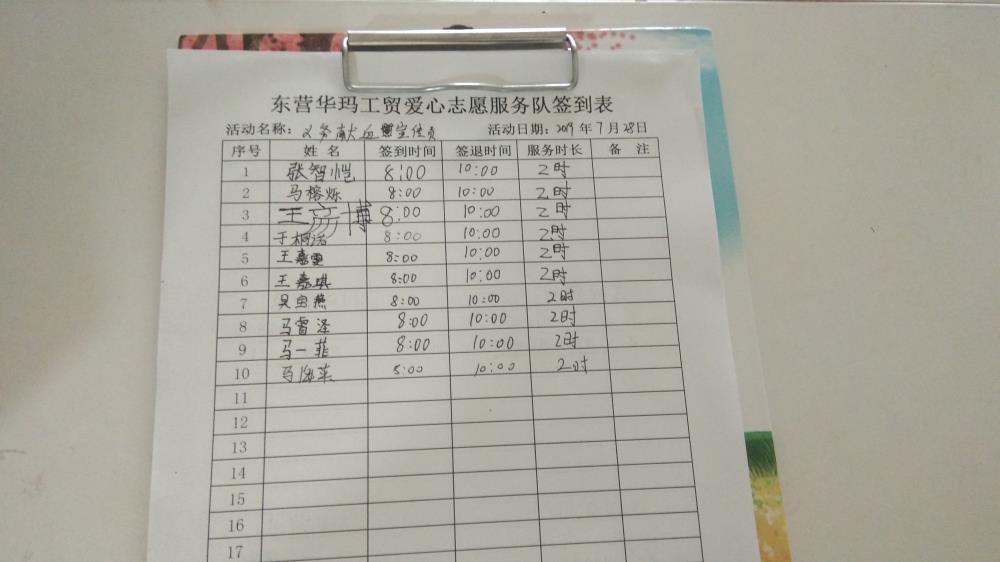 东营华玛工贸爱心志愿服务队签到表
活动名称：义务献血宣传员 活动日期：2019年7月28日
序号 姓名 签到时间 签退时间 服务时长 备注
1 张智恺 8:00 10:00 2时
2 马榕烁 8:00 10:00 2时
3 王彦博 8:00 10:00 2时
4 于桐浩 8:00 10:00 2时
5 王嘉雯 8:00 10:00 2时
6 王嘉琪 8:00 10:00 2时
7 吴宝燕 8:00 10:00 2时
8 马睿泽 8:00 10:00 2时
9 马一菲 8:00 10:00 2时
10 8:00 10:00 2时
11
12
13
14
15
16
17